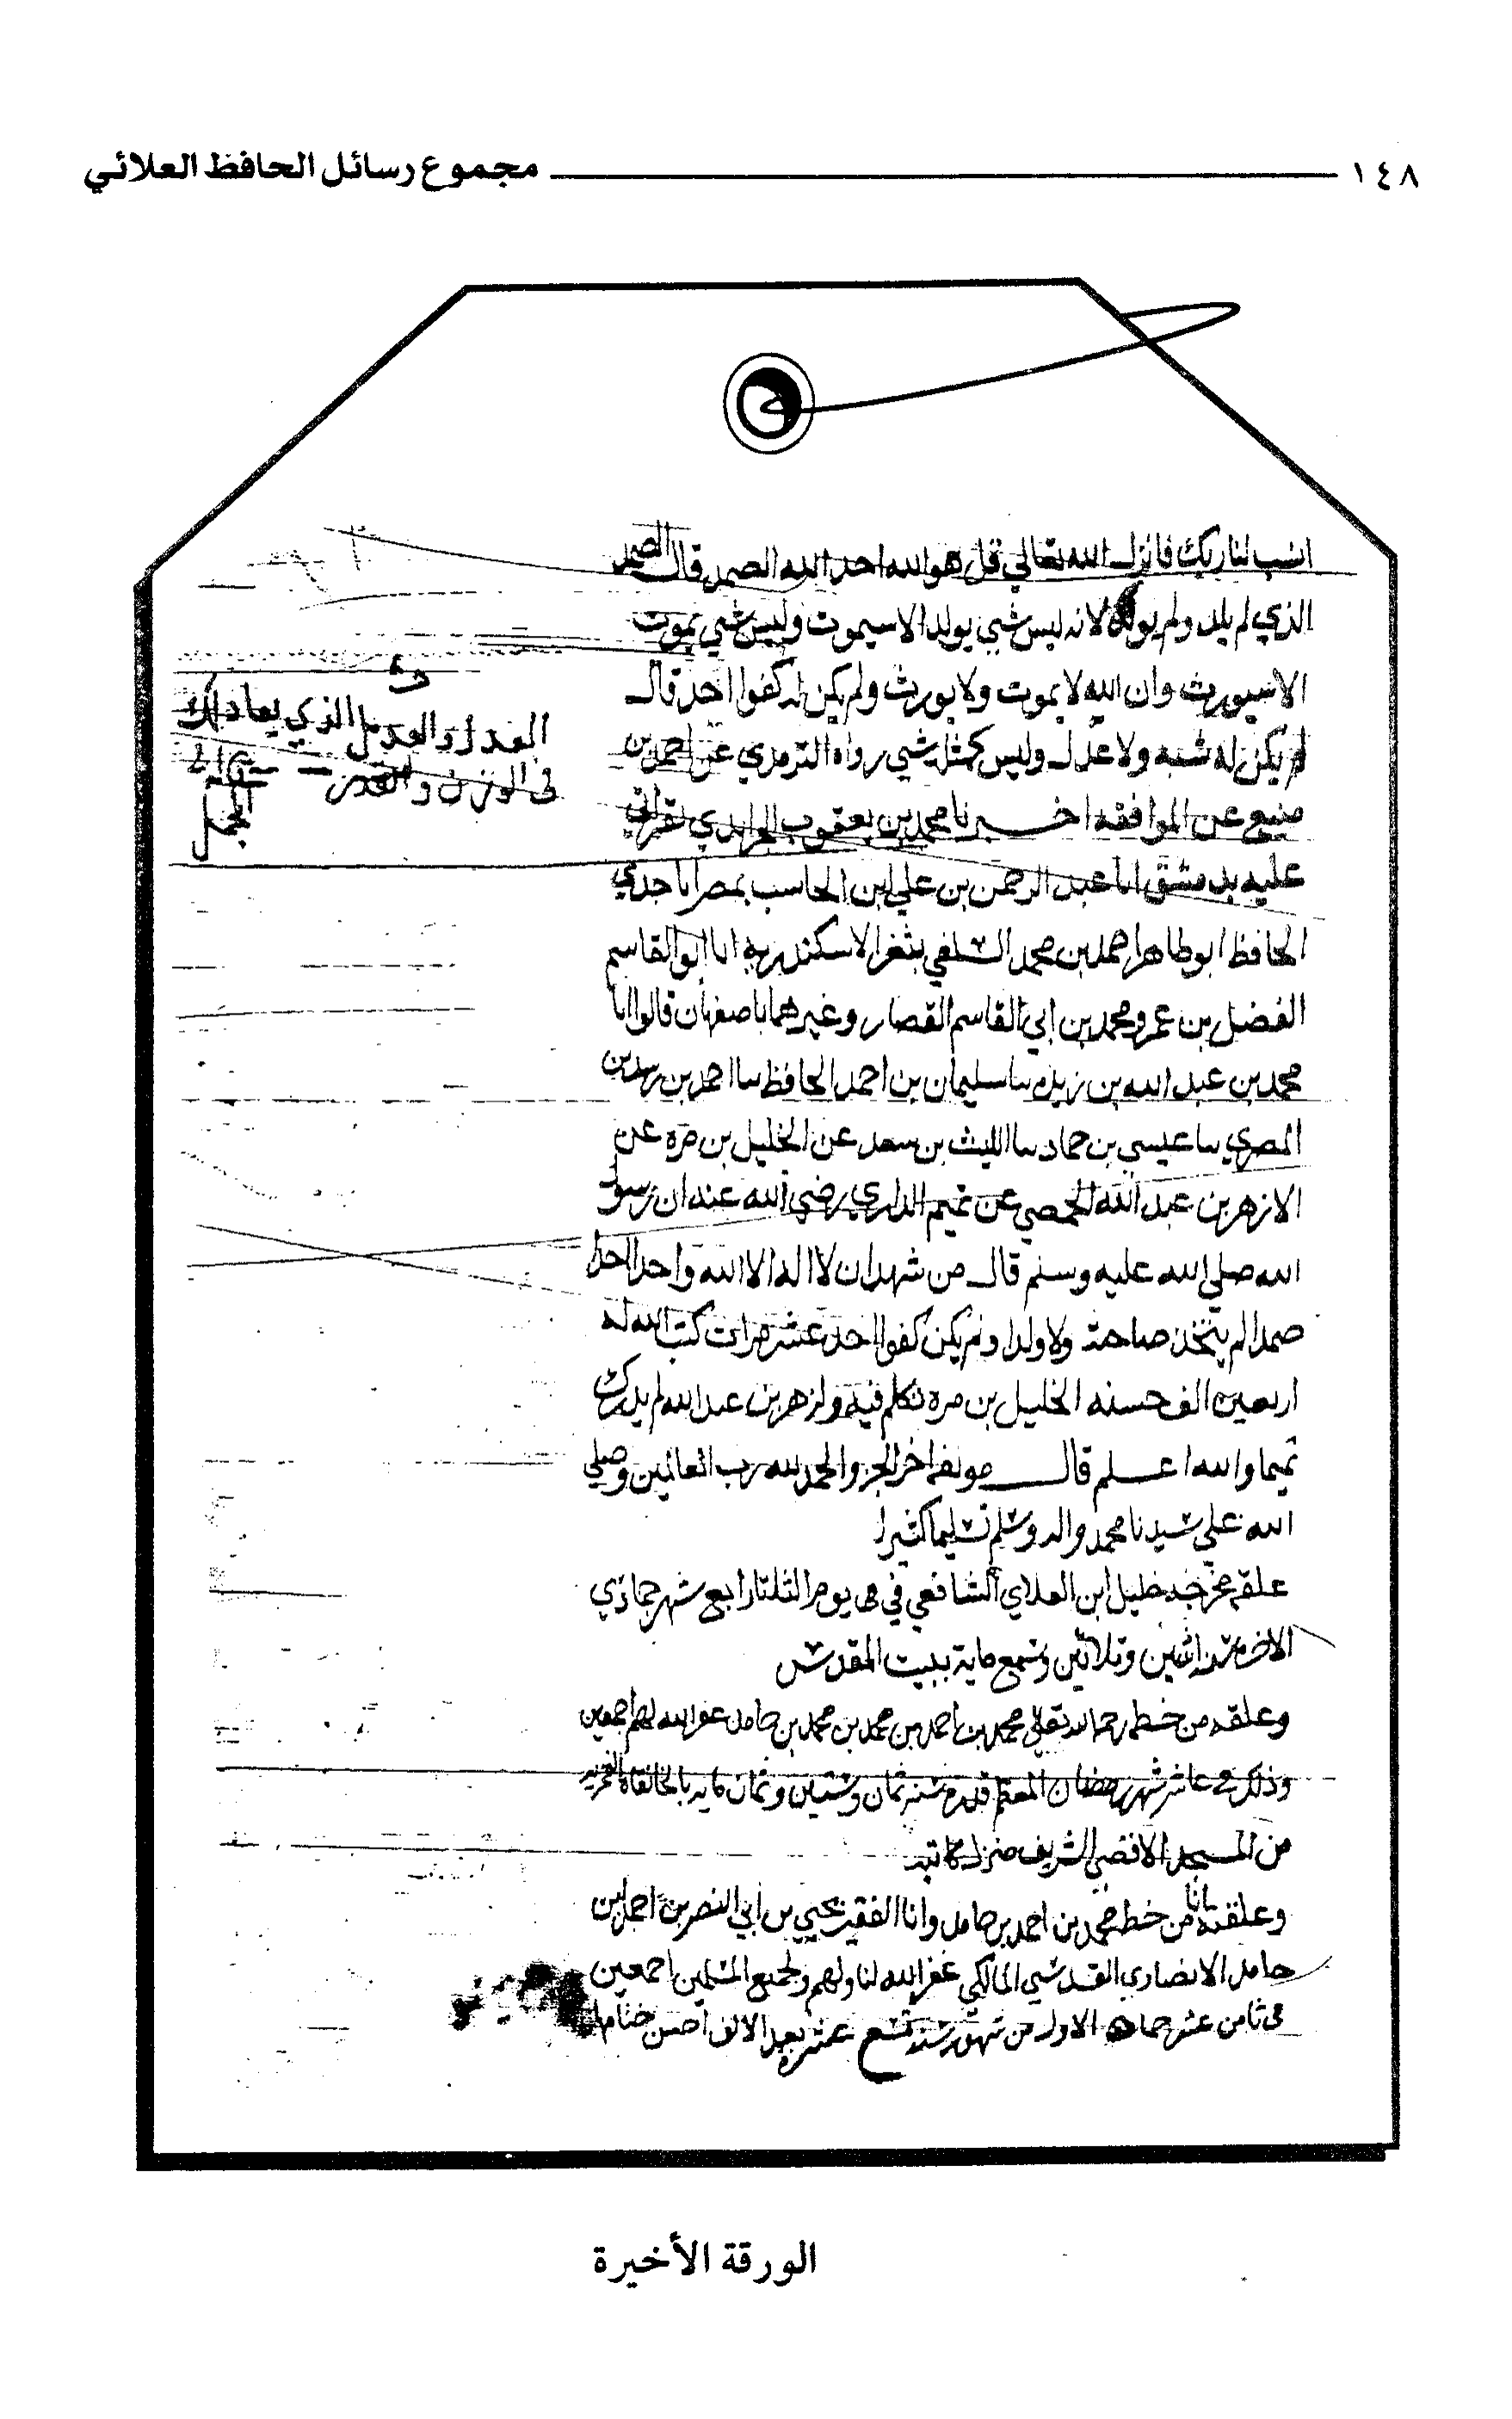 ١٤٨ مجموع رسائل الحافظ العلائي
انسب لنا ربك فانزل الله تعالي قل هو الله احد الله الصمد قال الصمد
الذي لم يلد ولم يولد لانه ليس شي يولد الا سيموت وليس شي يموت
الا سيورث وان الله لا يموت ولا يورث ولم يكن له كفوا احد قال
لم يكن له شبه ولا عدل وليس كمثله شي رواه الترمذي عن احمد بن
منيع عن الموافقه اخبرنا محمد بن يعقوب الجرايدي بقراتي
عليه بدمشق انا عبد الرحمن بن علي ابن الحاسب بمصر انا جدي
الحافظ ابو طاهر احمد بن محمد السلفي بثغر الاسكندريه انا ابو القاسم
الفضل بن عمر ومحمد بن ابي القاسم القصار وغيرهما باصفهان قالوا انا
محمد بن عبد الله بن ريذه سا سليمان بن احمد الحافظ سا احمد بن رسدين
المصري سا عيسي بن حماد سا الليث بن سعد عن الخليل بن مره عن
الازهر بن عبد الله الحمصي عن تميم الداري رضي الله عنه ان رسول
الله صلي الله عليه وسلم قال من شهد ان لا اله الا الله واحدا احدا
صمدا لم يتخذ صاحبة ولا ولدا ولم يكن كفوا احد عشر مرات كتب الله له
اربعين الف حسنه الخليل بن مره تكلم فيه وازهر بن عبد الله لم يدرك
تميما والله اعلم قال مولفه اخر الجزو الحمد لله رب العالمين وصلي
الله علي سيدنا محمد واله وسلم تسليما كثيرا
علقه مخرجه خليل ابن العلاي الشافعي في يوم الثلثا رابع شهر جمادي
الاخره سنه اثنين وثلاثين وسبع ماية ببيت المقدس
وعلقه من خطه رحمه الله تعالي محمد بن احمد بن محمد بن محمد بن حامد عفا الله لهم اجمعين
وذلك في عاشر شهر رمضان المعظم قدره سنه ثمان وستين وثمان مايه بالخانقاه الفخريه
من المسجد الاقصي الشريف منزل كاتبه
وعلقه انا من خط محمد بن احمد بن حامد وانا الفقير يحيي بن ابي النصر بن احمد بن
حامد الانصاري القدسي المالكي غفر الله لنا ولهم ولجميع المسلمين اجمعين
في ثامن عشر جماد الاول من شهور سنه تسع عشره بعد الالف احسن ختامها
العدل والعدل الذي يعادلك
في الوزن والقدر
المجمل
الورقة الأخيرة